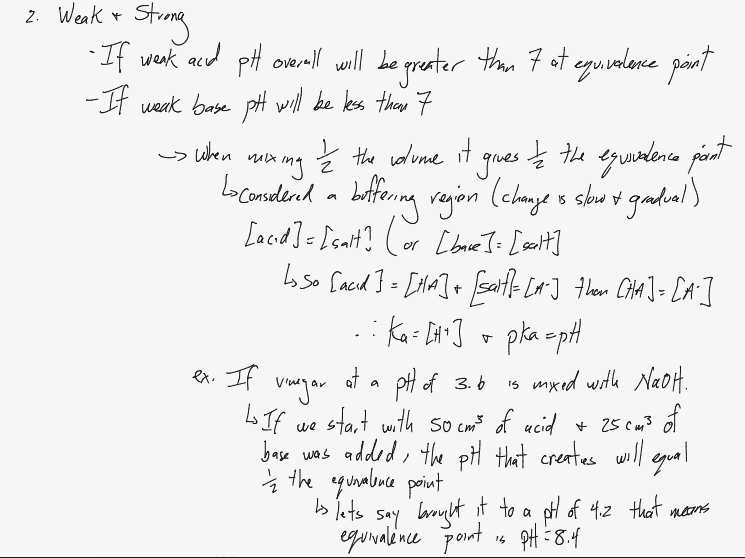 2. Weak + Strong
- If weak acid pH overall will be greater than 7 at equivalence point
- If weak base pH will be less than 7
→ when mixing 1/2 the volume it gives 1/2 the equivalence point
↳ Considered a buffering region (change is slow + gradual)
[acid] = [salt] (or [base] = [salt]
↳ So [acid] = [HA] + [salt] = [A⁻] then [HA] = [A⁻]
∴ Ka = [H⁺] + pKa = pH
ex. If vinegar at a pH of 3.6 is mixed with NaOH.
↳ If we start with 50 cm³ of acid + 25 cm³ of
base was added, the pH that creates will equal
1/2 the equivalence point
↳ lets say brought it to a pH of 4.2 that means
equivalence point is pH = 8.4